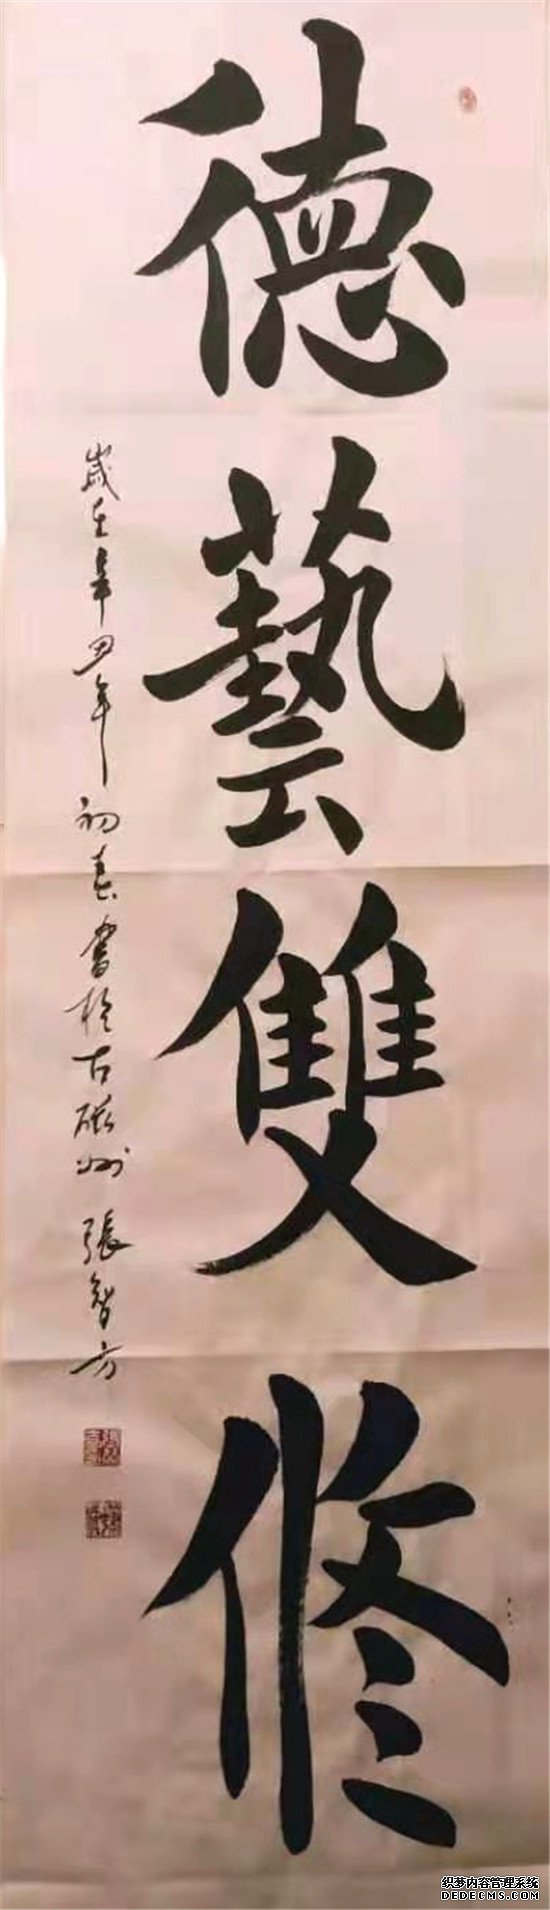 德藝雙修
歲在辛丑年初春書於古磁州 張智方
织梦内容管理系统
DEDECMS.COM